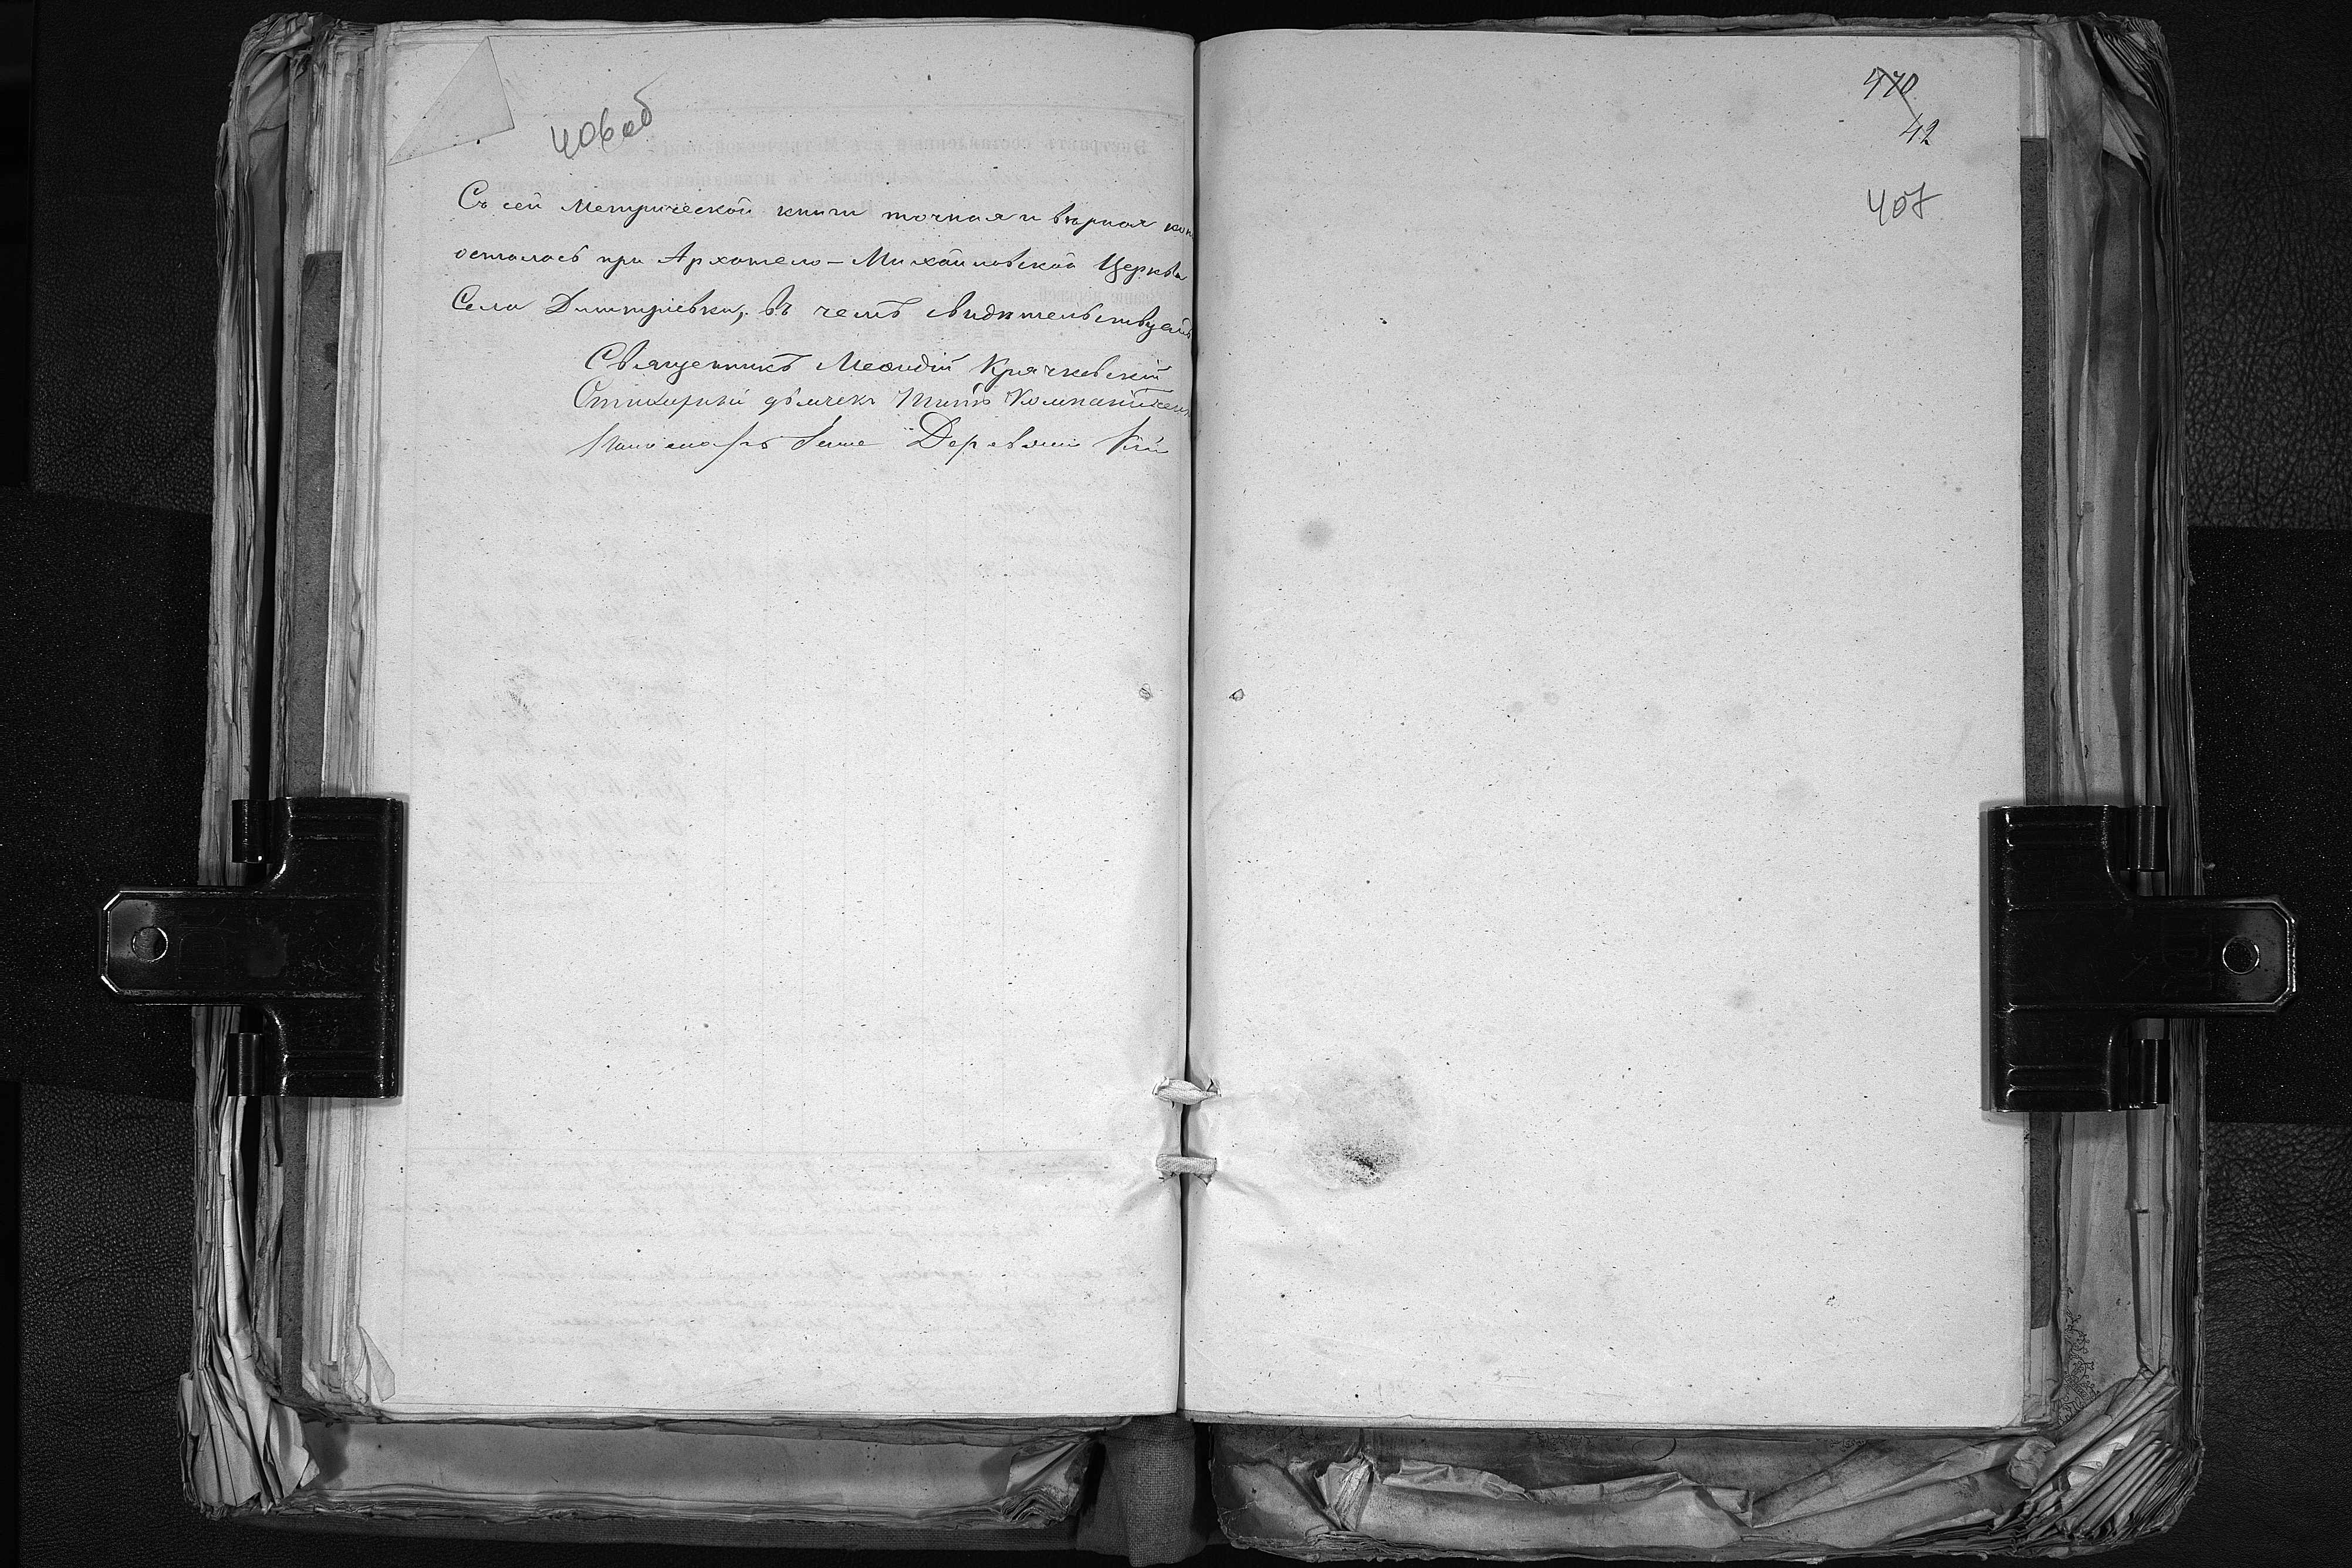 406 об
Съ сей Метрической книги точная и вѣрная коп
осталась при Архангело-Михайловской Церкви
Села Дмитріевки, въ чемъ свидѣтельствуемъ
Священникъ Меѳодій Крячковскій
Стихарный дьячекъ
Пономарь
470
42
407